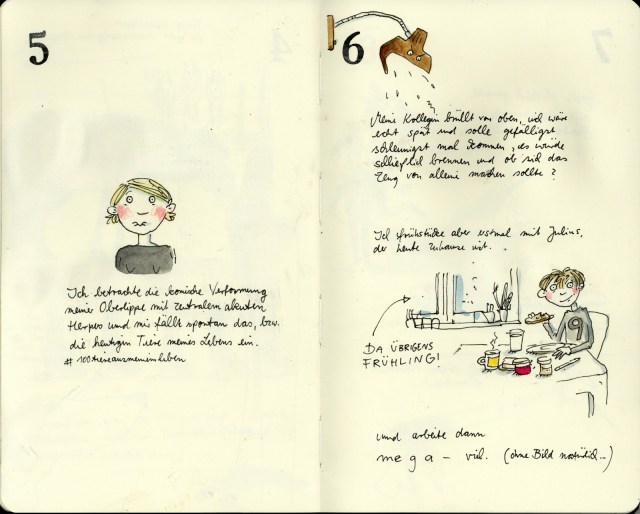 5
Ich betrachte die konische Verformung
meiner Oberlippe mit zentralem akuten
Herpes und mir fällt spontan das, bzw.
die heutigen Tiere meines Lebens ein.
#100tiereausmeinemleben
6
Meine Kollegin brüllt von oben, ich wäre
echt spät und solle gefälligst
schleunigst mal kommen, es würde
schließlich brennen und ob sich das
Zeug von alleine machen sollte?
Ich frühstücke aber erstmal mit Julius,
der heute Zuhause ist.
9
DA ÜBRIGENS
FRÜHLING!
und arbeite dann
mega - viel. (ohne Bild natürlich...)